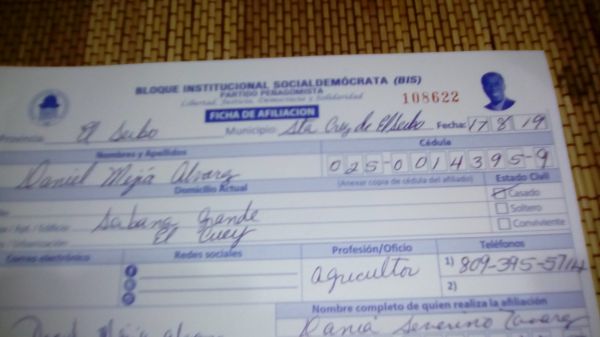 BLOQUE INSTITUCIONAL SOCIALDEMÓCRATA (BIS)
PARTIDO PEÑAGOMISTA
Libertad, Justicia, Democracia y Solidaridad
108622
FICHA DE AFILIACION
Provincia: El Seibo Municipio: Sta Cruz de El Seibo Fecha: 17 8 19
Nombres y Apellidos Cédula
Daniel Mejia Alvarez 025-0014395-9
Domicilio Actual (Anexar copia de cédula del afiliado) Estado Civil
Casado
/ Apt. / Edificio Sabana Grande Soltero
/ Urbanización El Cuey Conviviente
Correo electrónico Redes sociales Profesión/Oficio Teléfonos
Agricultor 1) 809-395-5714
2)
Nombre completo de quien realiza la afiliación
Mejia Dania Severino